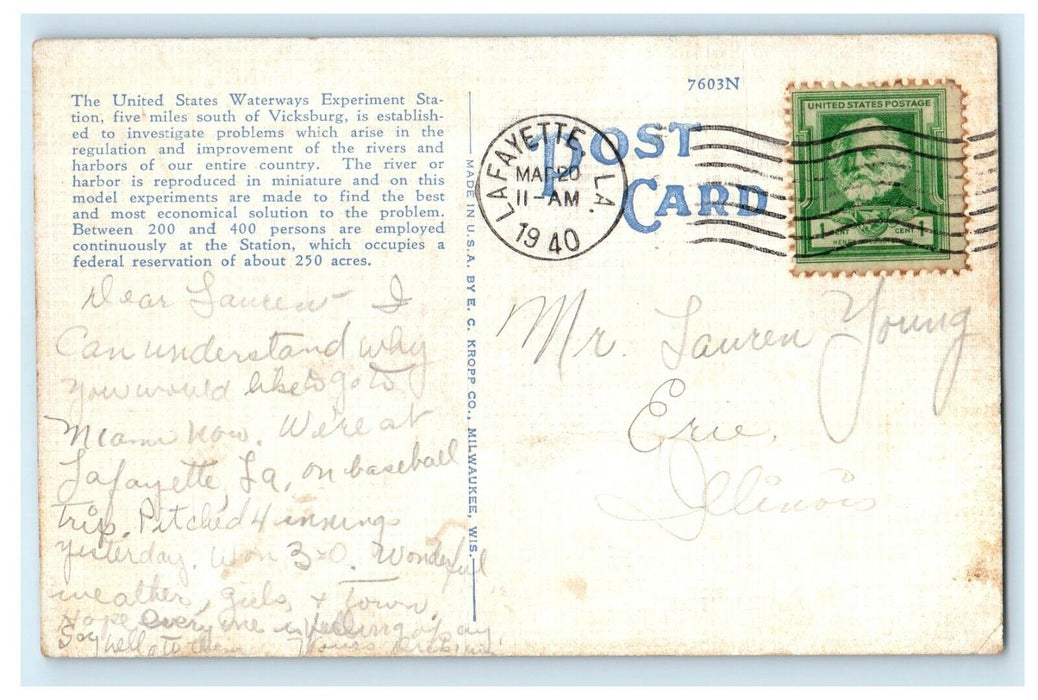 7603N
The United States Waterways Experiment Sta-
tion, five miles south of Vicksburg, is establish-
ed to investigate problems which arise in the
regulation and improvement of the rivers and
harbors of our entire country. The river or
harbor is reproduced in miniature and on this
model experiments are made to find the best
and most economical solution to the problem.
Between 200 and 400 persons are employed
continuously at the Station, which occupies a
federal reservation of about 250 acres.
Dear Lauren - I
Can understand why
you would like to go to
Miami now. We're at
Lafayette, La, on baseball
trip. Pitched 4 innings
yesterday. Won 3-0. Wonderful
weather, girls, + town.
Hope everyone is feeling
Say hello to them. Yours
MADE IN U.S.A. BY E. C. KROPP CO., MILWAUKEE, WIS.
POST
CARD
LAFAYETTE, LA.
MAR 20
11-AM
1940
UNITED STATES POSTAGE
1 CENT 1
Mr. Lauren Young
Erie,
Illinois